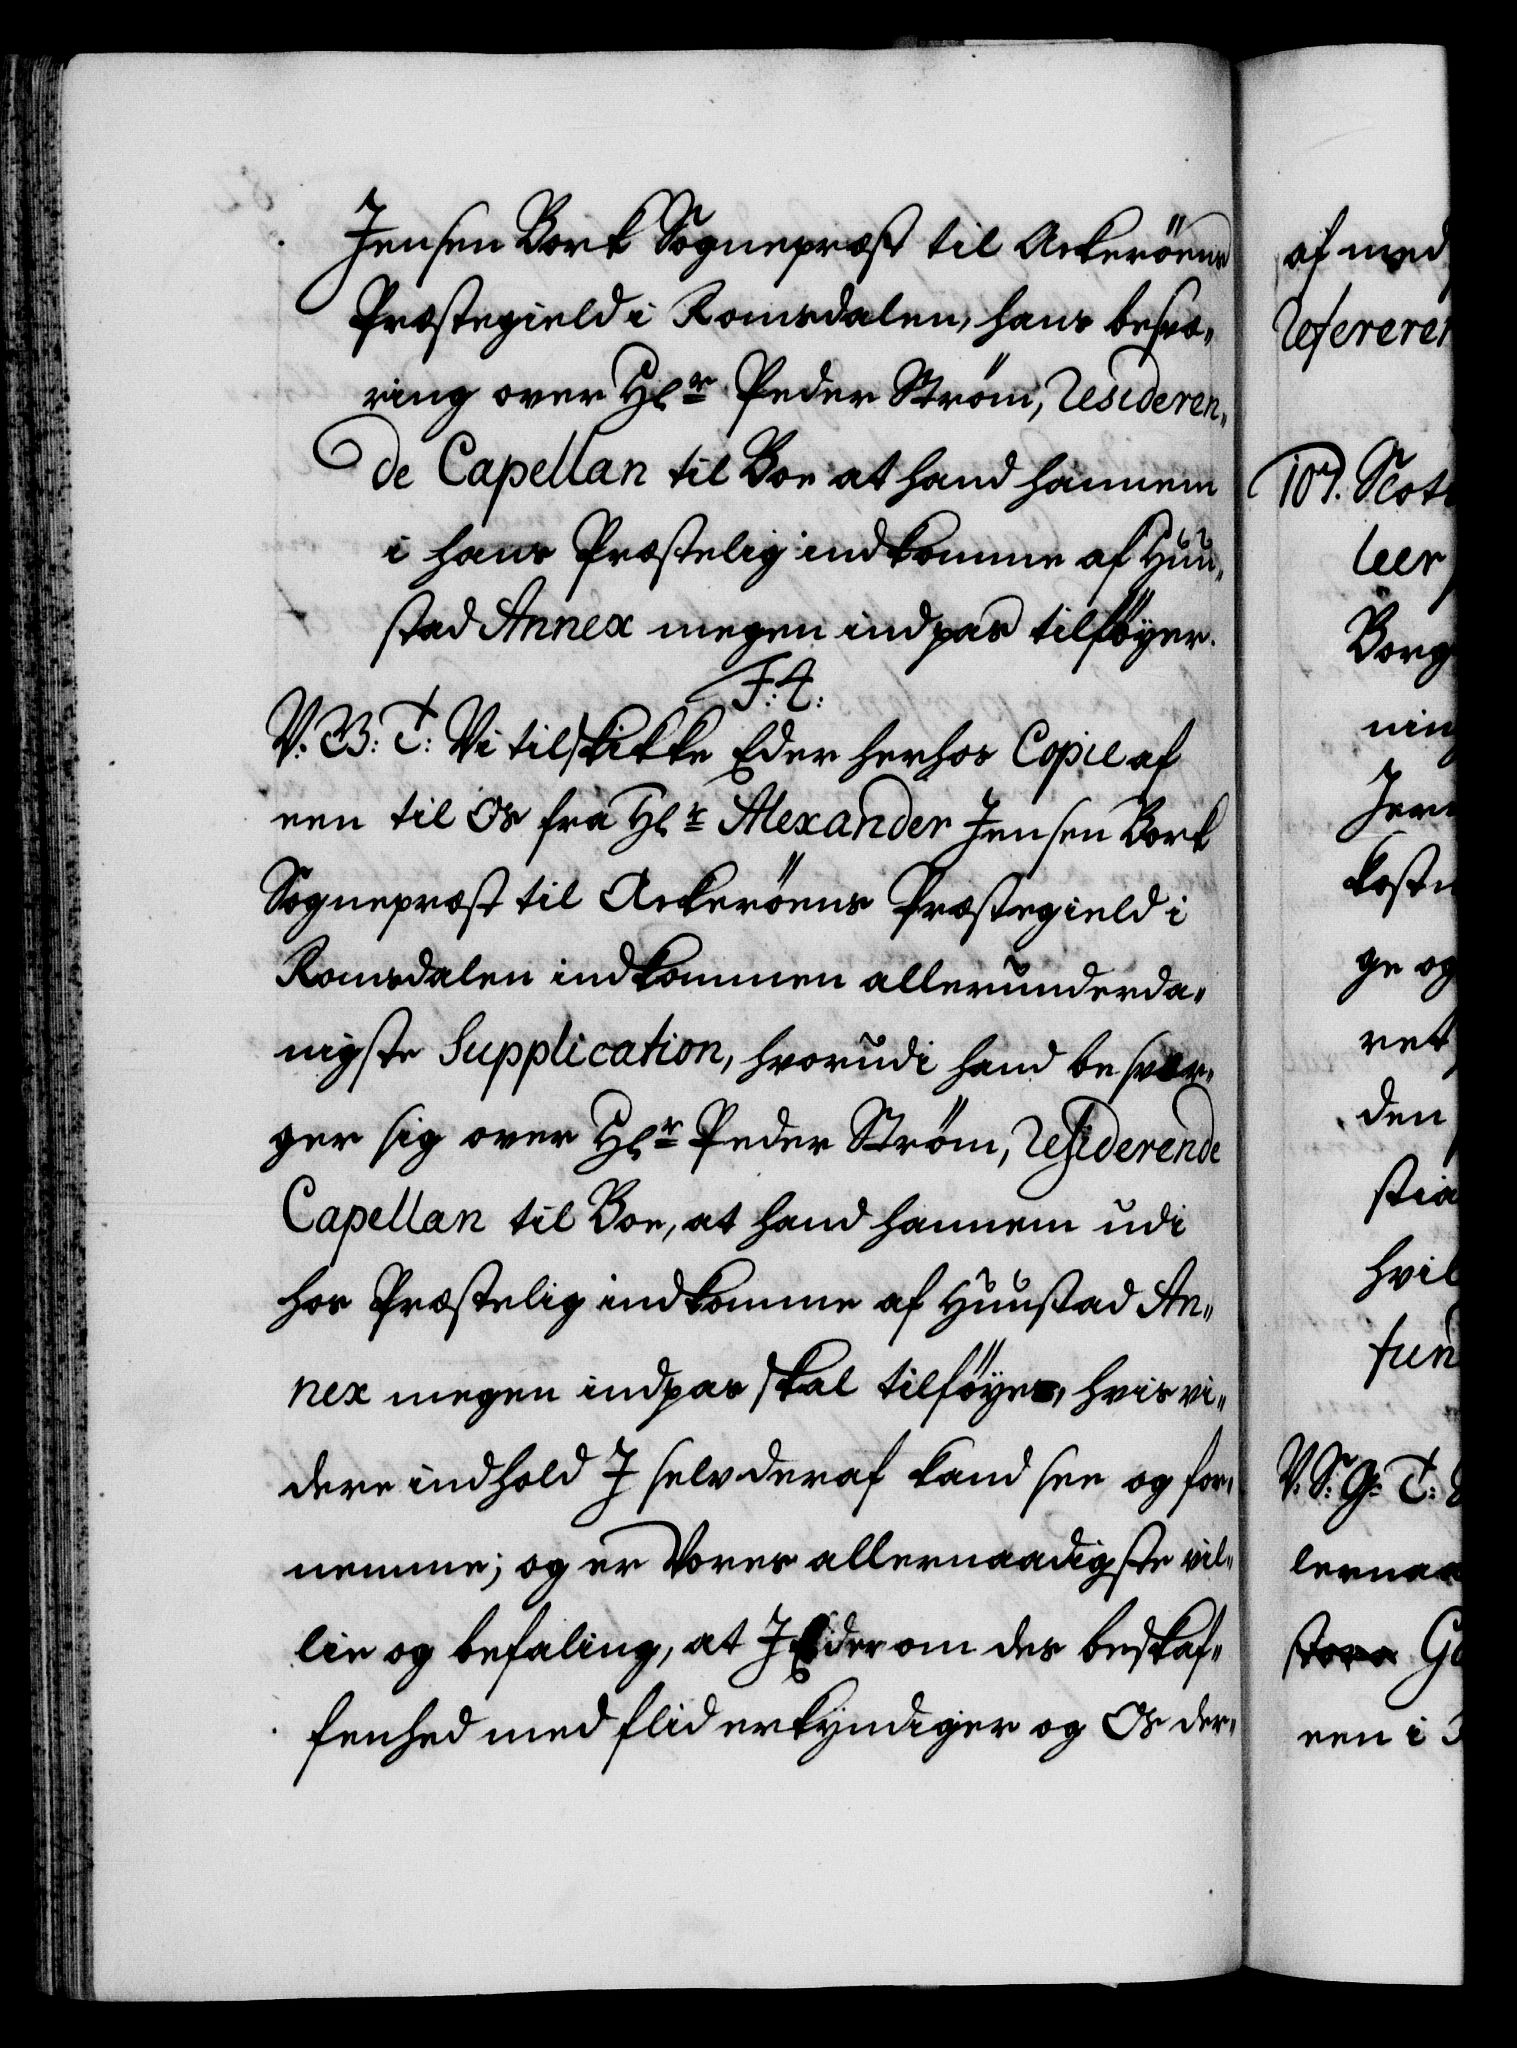 Jensen Bork Sognepræst til Ackeröens
Præstegield i Romsdalen, hans besvæ„
ring over Hr. Peder Ström, Resideren„
de Capellan til Boe at hand hannem
i hans Præstelig indkomme af Huu„
stad Annex megen indpas tilföyer.
F: 4:
V. B: T: Vi tilskikke Eder herhos Copie af
een til Os fra Hr. Alexander Jensen Bork
Sognepræst til Ackeröens Præstegield i
Romsdalen indkommen allerunderda„
nigste Supplication, hvorudi hand besvær„
ger sig over Hr. Peder Ström, Residerende
Capellan til Boe, at hand hannem udi
hos Præstelig indkomme af Huustad An„
nex megen indpas skal tilföye, hvis vi„
dere indhold I selv deraf kand see og for„
nemme; og er Vores allernaadigste vil„
lie og befaling, at I Eder om des beskaf„
fenhed med flid erkyndiger og Os der„
af med
referere
107. Scot
leer
Borg
nin
Jer
kost
ge og
ret
den
stia
hvil
fun
V. S: G: T:
lernaa
een i